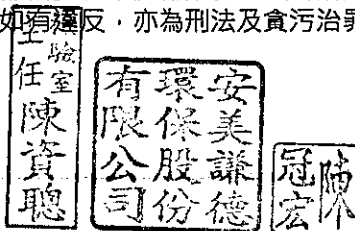 如有違反，亦為刑法及貪污治
驗室
主任陳資聰
安美謙德
環保股份
有限公司
陳
冠宏